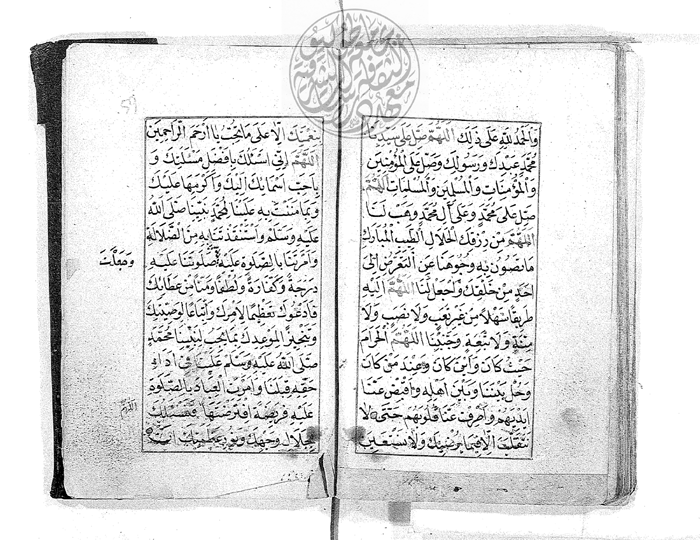 وَالْحَمْدُ لِلَّهِ عَلَى ذَلِكَ اللَّهُمَّ صَلِّ عَلَى سَيِّدِنَا
مُحَمَّدٍ عَبْدِكَ وَرَسُولِكَ وَصَلِّ عَلَى الْمُؤْمِنِينَ
وَالْمُؤْمِنَاتِ وَالْمُسْلِمِينَ وَالْمُسْلِمَاتِ اللَّهُمَّ
صَلِّ عَلَى مُحَمَّدٍ وَعَلَى آلِ مُحَمَّدٍ وَهَبْ لَنَا
اللَّهُمَّ مِنْ رِزْقِكَ الْحَلَالِ الطَّيِّبِ الْمُبَارَكِ
مَا تَصُونُ بِهِ وُجُوهَنَا عَنِ التَّعَرُّضِ إِلَى
أَحَدٍ مِنْ خَلْقِكَ وَاجْعَلْ لَنَا اللَّهُمَّ إِلَيْهِ
طَرِيقًا سَهْلًا مِنْ غَيْرِ تَعَبٍ وَلَا نَصَبٍ وَلَا
مِنَّةٍ وَلَا تَبِعَةٍ وَجَنِّبْنَا اللَّهُمَّ الْحَرَامَ
حَيْثُ كَانَ وَأَيْنَ كَانَ وَعِنْدَ مَنْ كَانَ
وَحُلْ بَيْنَنَا وَبَيْنَ أَهْلِهِ وَاقْبِضْ عَنَّا
أَيْدِيَهُمْ وَاصْرِفْ عَنَّا قُلُوبَهُمْ حَتَّى لَا
نَتَقَلَّبَ إِلَّا فِيمَا يُرْضِيكَ وَلَا نَسْتَعِينَ
بِنِعْمَتِكَ إِلَّا عَلَى مَا تُحِبُّ يَا أَرْحَمَ الرَّاحِمِينَ
اللَّهُمَّ إِنِّي أَسْأَلُكَ بِأَفْضَلِ مَسْئَلَتِكَ وَ
بِأَحَبِّ أَسْمَائِكَ إِلَيْكَ وَأَكْرَمِهَا عَلَيْكَ
وَبِمَا مَنَنْتَ بِهِ عَلَيْنَا لِمُحَمَّدٍ نَبِيِّنَا صَلَّى اللَّهُ
عَلَيْهِ وَسَلَّمَ وَاسْتَنْقَذْتَنَا بِهِ مِنَ الضَّلَالَةِ
وَأَمَرْتَنَا بِالصَّلَوةِ عَلَيْهِ صَلَوتَنَا عَلَيْهِ
وَجَعَلْتَ
دَرَجَةً وَكَفَّارَةً وَلُطْفًا وَمَنًّا مِنْ عَطَائِكَ
فَأَدْعُوكَ تَعْظِيمًا لِأَمْرِكَ وَاتِّبَاعًا لِوَصِيَّتِكَ
وَتَنْجِيزًا لِمَوْعِدِكَ بِمَا يَجِبُ لِنَبِيِّنَا مُحَمَّدٍ
صَلَّى اللَّهُ عَلَيْهِ وَسَلَّمَ عَلَيْنَا فِي أَدَاءِ
حَقِّهِ قِبَلَنَا وَأَمَرْتَ الْعِبَادَ بِالصَّلَوةِ
عَلَيْهِ فَرِيضَةً افْتَرَضْتَهَا فَنَسْئَلُكَ
بِجَلَالِ وَجْهِكَ وَنُورِ عَظَمَتِكَ